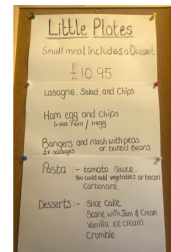 Little Plates
Small meal includes a Dessert
£10.95
Lasagne Salad, and Chips
Ham egg and Chips
1 slice Ham / 1 egg
Bangers and mash with peas
2x sausages or baked Beans
Pasta :- tomato Sauce.
You could add vegetables or bacon
Carbonara,
Desserts :- Slice Cake
Scone with Jam & Cream
Vanilla ice cream
Crumble